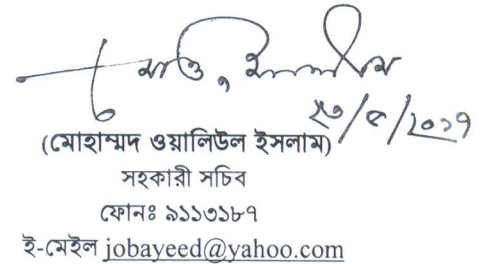 ২৩/৫/২০১৭
(মোহাম্মদ ওয়ালিউল ইসলাম)
সহকারী সচিব
ফোনঃ ৯১১৩১৮৭
ই-মেইল jobayeed@yahoo.com